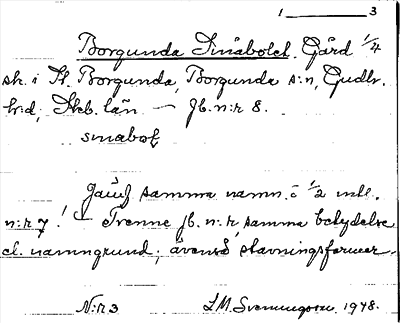 1 3
Borgunda Småbolet. Gård 1/4
sk. i St. Borgunda, Borgunda s:n, Gudh.
h:d, Skb. län — Jb. n:r 8.
småbol
Jämf samma namn å 1/2 mtl.
n:r 7! — Trenne jb. n:r, samma betydelse
el. namngrund; ävenså stavningsformer.
N:r 3 L.M. Svenungsson 1948.